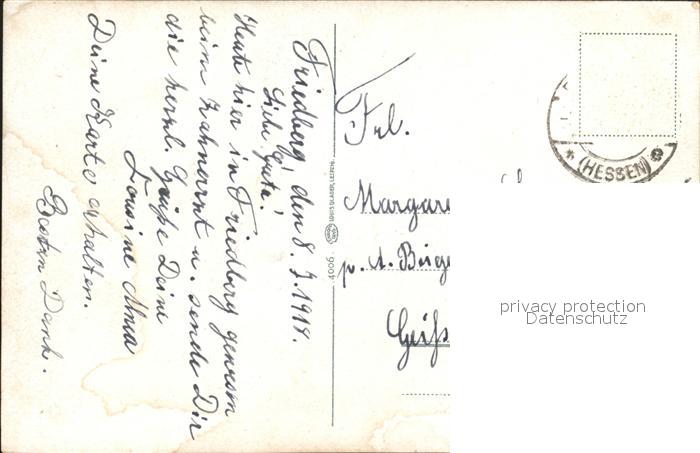 Friedberg, den 8. 7. 1919.
Liebe Grete!
Heute hier in Friedberg gewesen
beim Zahnarzt u. sende Dir
die herzl. Grüße Deine
Cousine Anna
Deine Karte erhalten.
Besten Dank.
4006. LOUIS GLASER, LEIPZIG
Frl.
Margare
p. A. Bürge
(HESSEN)
privacy protection
Datenschutz